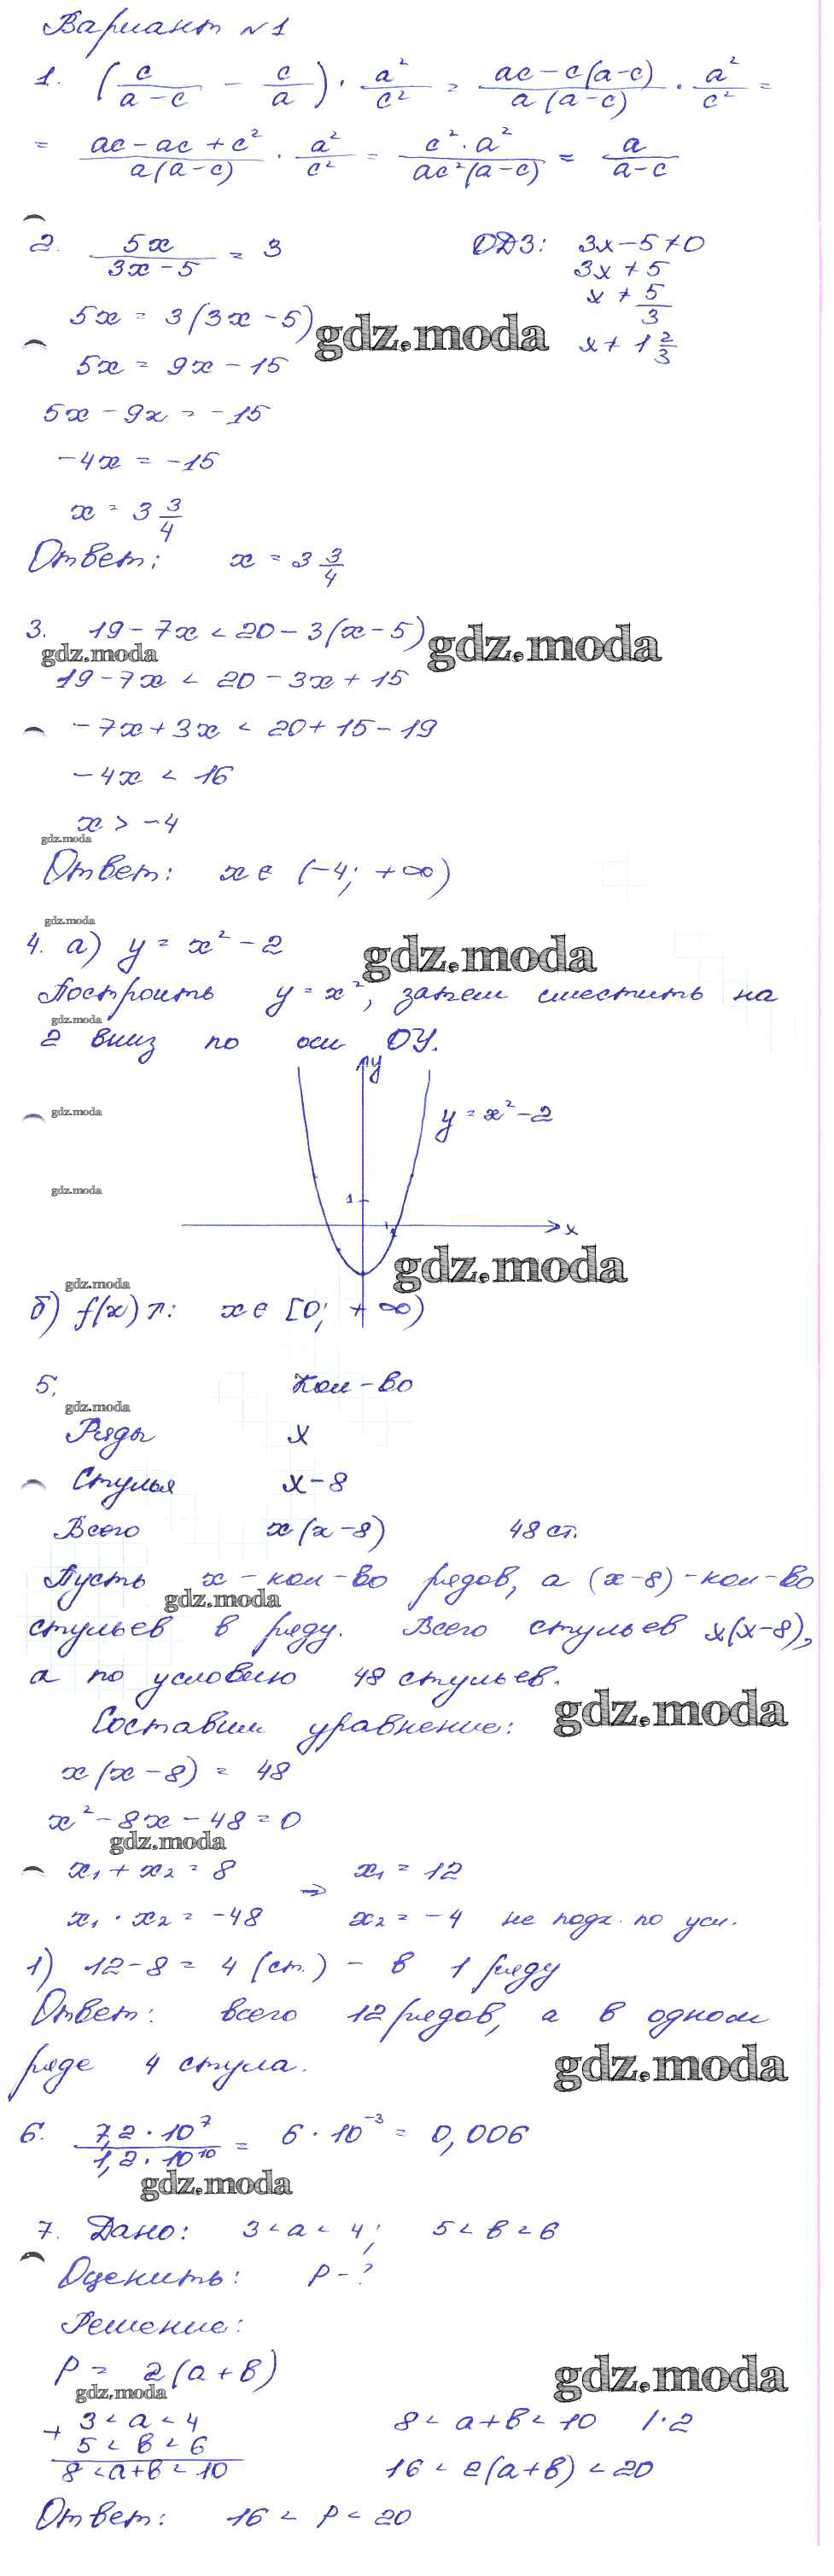 Вариант №1
1. (c/(a-c) - c/a) · a²/c² = (ac-c(a-c))/(a(a-c)) · a²/c² =
= (ac-ac+c²)/(a(a-c)) · a²/c² = (c²·a²)/(ac²(a-c)) = a/(a-c)
2. 5x/(3x-5) = 3 ОДЗ: 3x-5≠0
3x≠5
5x = 3(3x-5) x≠5/3
gdz.moda
5x = 9x-15 x≠1 2/3
5x-9x = -15
-4x = -15
x = 3 3/4
Ответ: x = 3 3/4
3. 19-7x < 20-3(x-5)
gdz.moda gdz.moda
19-7x < 20-3x+15
-7x+3x < 20+15-19
-4x < 16
x > -4
gdz.moda
Ответ: x∈(-4; +∞)
gdz.moda
4. а) y = x²-2
gdz.moda
Построить y=x², затем сместить на
gdz.moda
2 вниз по оси ОУ.
y
gdz.moda
y=x²-2
gdz.moda
1
1
x
gdz.moda
gdz.moda
б) f(x)↗: x∈[0; +∞)
5. Кол-во
gdz.moda
Ряды x
Стулья x-8
Всего x(x-8) 48 ст.
Пусть x - кол-во рядов, а (x-8)-кол-во
gdz.moda
стульев в ряду. Всего стульев x(x-8),
а по условию 48 стульев.
gdz.moda
Составим уравнение:
x(x-8) = 48
x²-8x-48=0
gdz.moda
x₁+x₂=8 ⇒ x₁=12
x₁·x₂=-48 x₂=-4 не подх. по усл.
1) 12-8=4 (ст.) - в 1 ряду
Ответ: всего 12 рядов, а в одном
ряде 4 стула.
gdz.moda
6. (7,2·10⁷)/(1,2·10¹⁰) = 6·10⁻³ = 0,006
gdz.moda
7. Дано: 3<a<4; 5<b<6
Оценить: P-?
Решение:
P = 2(a+b)
gdz.moda
gdz.moda
+ 3<a<4 8<a+b<10 |·2
5<b<6
8<a+b<10 16<2(a+b)<20
Ответ: 16<P<20